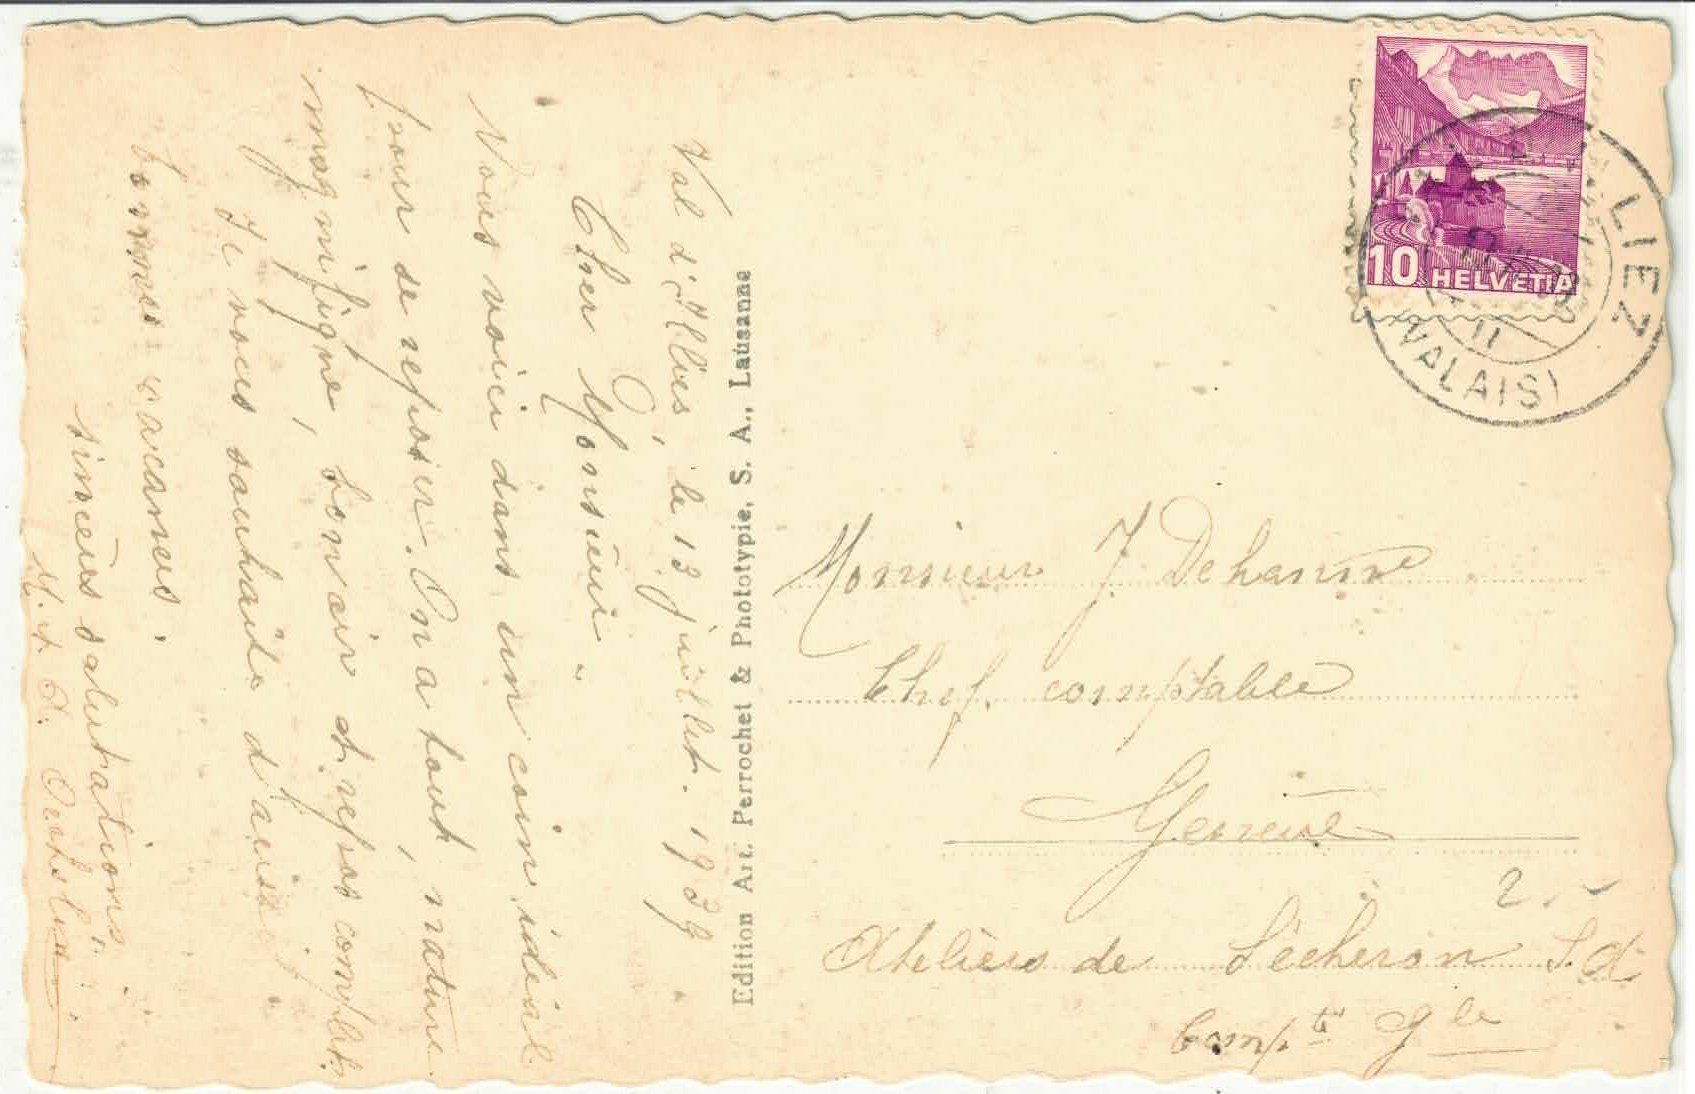 Val d'Illiez, le 13 juillet. 1939
Cher Monsieur
Vous voici dans un coin idéal
pour se reposer. On a tout, nature
magnifique, bon air et repos complet.
Je vous souhaite d'aussi
bonnes vacances.
sincères salutations.
M. et
Edition Art. Perrochet & Phototypie, S. A., Lausanne
10 HELVETIA
LIEZ
(VALAIS)
II
Monsieur J. Dehanne
Chef. comptable
Genève
2.
Ateliers de Sécheron S.A
Comp^té G^le